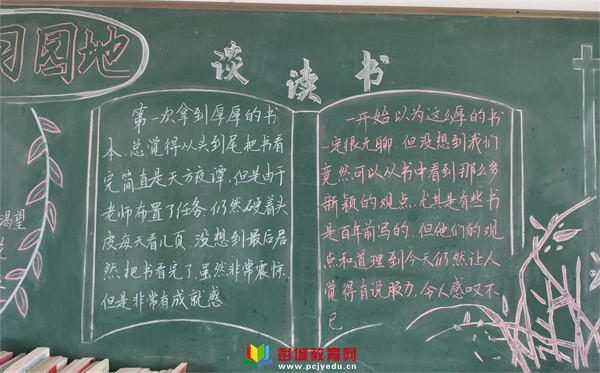 习园地
谈读书
第一次拿到厚厚的书
本，总觉得从头到尾把书看
完简直是天方夜谭，但是由于
老师布置了任务，仍然硬着头
皮每天看几页，没想到最后居
然把书看完了，虽然非常震惊，
但是非常有成就感
一开始以为这么厚的书
一定很无聊，但没想到我们
竟然可以从书中看到那么多
新颖的观点，尤其是有些书
是百年前写的，但他们的观
点和道理到今天仍然让人
觉得有说服力，令人感叹不
已
渴望
彭城教育网
www.pcjyedu.cn